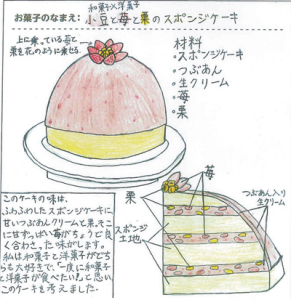 和菓子×洋菓子
お菓子のなまえ: 小豆と苺と栗のスポンジケーキ
上に乗っている苺と
栗を花のように乗せる。
材料
・スポンジケーキ
・つぶあん
・生クリーム
・苺
・栗
苺
栗
つぶあん入り
生クリーム
スポンジ
土地
このケーキの味は、
ふわふわしたスポンジケーキに
甘いつぶあんクリームと栗、そこ
に甘ずっぱい苺がちょうど良
く合わさった味がします。
私は和菓子と洋菓子がどち
らも大好きで、一度に和菓子
と洋菓子が食べたい!と思い
このケーキを考えました。